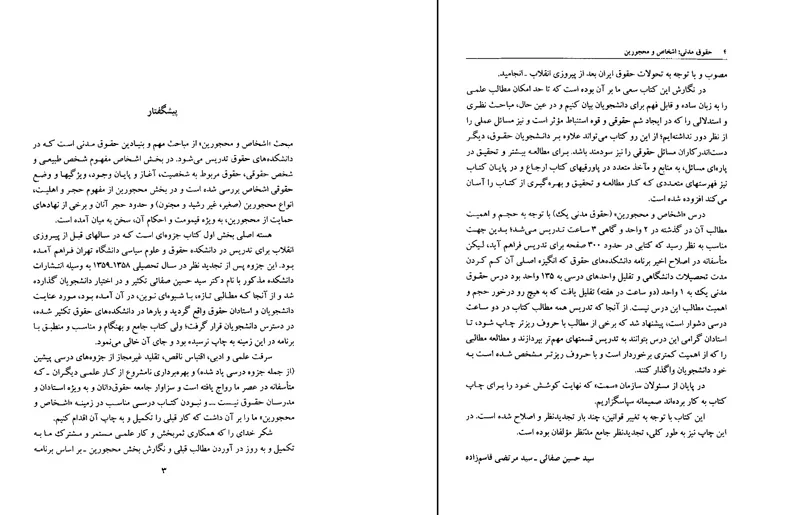 پیشگفتار
مبحث «اشخاص و محجورین» از مباحث مهم و بنیادین حقوق مدنی است که در
دانشکده‌های حقوق تدریس می‌شود. در بخش اشخاص مفهوم شخص طبیعی و
شخص حقوقی، حقوق مربوط به شخصیت، آغاز و پایان وجود، ویژگیها و وضع
حقوقی اشخاص بررسی شده است و در بخش محجورین از مفهوم حجر و اهلیت،
انواع محجورین (صغیر، غیر رشید و مجنون) و حدود حجر آنان و برخی از نهادهای
حمایت از محجورین، به ویژه قیمومت و احکام آن، سخن به میان آمده است.
هسته اصلی بخش اول کتاب جزوه‌ای است که در سالهای قبل از پیروزی
انقلاب برای تدریس در دانشکده حقوق و علوم سیاسی دانشگاه تهران فراهم آمده
بود. این جزوه پس از تجدید نظر در سال تحصیلی ۱۳۵۸ـ۱۳۵۹ به وسیله انتشارات
دانشکده مذکور با نام دکتر سید حسین صفائی تکثیر و در اختیار دانشجویان گذارده
شد و از آنجا که مطالبی تازه، با شیوه‌ای نوین، در آن آمده بود، مورد عنایت
دانشجویان و استادان حقوق واقع گردید و بارها در دانشکده‌های حقوق تکثیر شده،
در دسترس دانشجویان قرار گرفت؛ ولی کتاب جامع و بهنگام و مناسب و منطبق با
برنامه در این زمینه به چاپ نرسیده بود و جای آن خالی می‌نمود.
سرقت علمی و ادبی، اقتباس ناقص، تقلید غیرمجاز از جزوه‌های درسی پیشین
(از جمله جزوه درسی یاد شده) و بهره‌برداری نامشروع از کار علمی دیگران ـ که
متأسفانه در عصر ما رواج یافته است و سزاوار جامعه حقوق‌دانان و به ویژه استادان و
مدرسان حقوق نیست ـ و نبودن کتاب درسی مناسب در زمینه «اشخاص و
محجورین» ما را بر آن داشت که کار قبلی را تکمیل و به چاپ آن اقدام کنیم.
شکر خدای را که همکاری ثمربخش و کار علمی مستمر و مشترک ما به
تکمیل و به روز در آوردن مطالب قبلی و نگارش بخش محجورین ـ بر اساس برنامه
۳
۴ حقوق مدنی: اشخاص و محجورین
مصوب و با توجه به تحولات حقوق ایران بعد از پیروزی انقلاب ـ انجامید.
در نگارش این کتاب سعی ما بر آن بوده است که تا حد امکان مطالب علمی
را به زبان ساده و قابل فهم برای دانشجویان بیان کنیم و در عین حال، مباحث نظری
و استدلالی را که در ایجاد شم حقوقی و قوه استنباط مؤثر است و نیز مسائل عملی را
از نظر دور نداشته‌ایم؛ از این رو کتاب می‌تواند علاوه بر دانشجویان حقوق، دیگر
دست‌اندرکاران مسائل حقوقی را نیز سودمند باشد. برای مطالعه بیشتر و تحقیق در
پاره‌ای مسائل، به منابع و مآخذ متعدد در پاورقیهای کتاب ارجاع و در پایان کتاب
نیز فهرستهای متعددی که کار مطالعه و تحقیق و بهره‌گیری از کتاب را آسان
می‌کند افزوده شده است.
درس «اشخاص و محجورین» (حقوق مدنی یک) با توجه به حجم و اهمیت
مطالب آن در گذشته در ۲ واحد و گاهی ۳ ساعت تدریس می‌شد؛ بدین جهت
مناسب به نظر رسید که کتابی در حدود ۳۰۰ صفحه برای تدریس فراهم آید، لیکن
متأسفانه در اصلاح اخیر برنامه دانشکده‌های حقوق که انگیزه اصلی آن کم کردن
مدت تحصیلات دانشگاهی و تقلیل واحدهای درسی به ۱۳۵ واحد بود درس حقوق
مدنی یک به ۱ واحد (دو ساعت در هفته) تقلیل یافت که به هیچ رو درخور حجم و
اهمیت مطالب این درس نیست. از آنجا که تدریس همه مطالب کتاب در دو ساعت
درسی دشوار است، پیشنهاد شد که برخی از مطالب با حروف ریزتر چاپ شود، تا
استادان گرامی این درس بتوانند به تدریس قسمتهای مهم‌تر بپردازند و مطالعه مطالبی
را که از اهمیت کمتری برخوردار است و با حروف ریزتر مشخص شده است به
خود دانشجویان واگذار کنند.
در پایان از مسئولان سازمان «سمت» که نهایت کوشش خود را برای چاپ
کتاب به کار برده‌اند صمیمانه سپاسگزاریم.
این کتاب با توجه به تغییر قوانین، چند بار تجدیدنظر و اصلاح شده است. در
این چاپ نیز به طور کلی، تجدیدنظر جامع مدّنظر مؤلفان بوده است.
سید حسین صفائی ـ سید مرتضی قاسم‌زاده